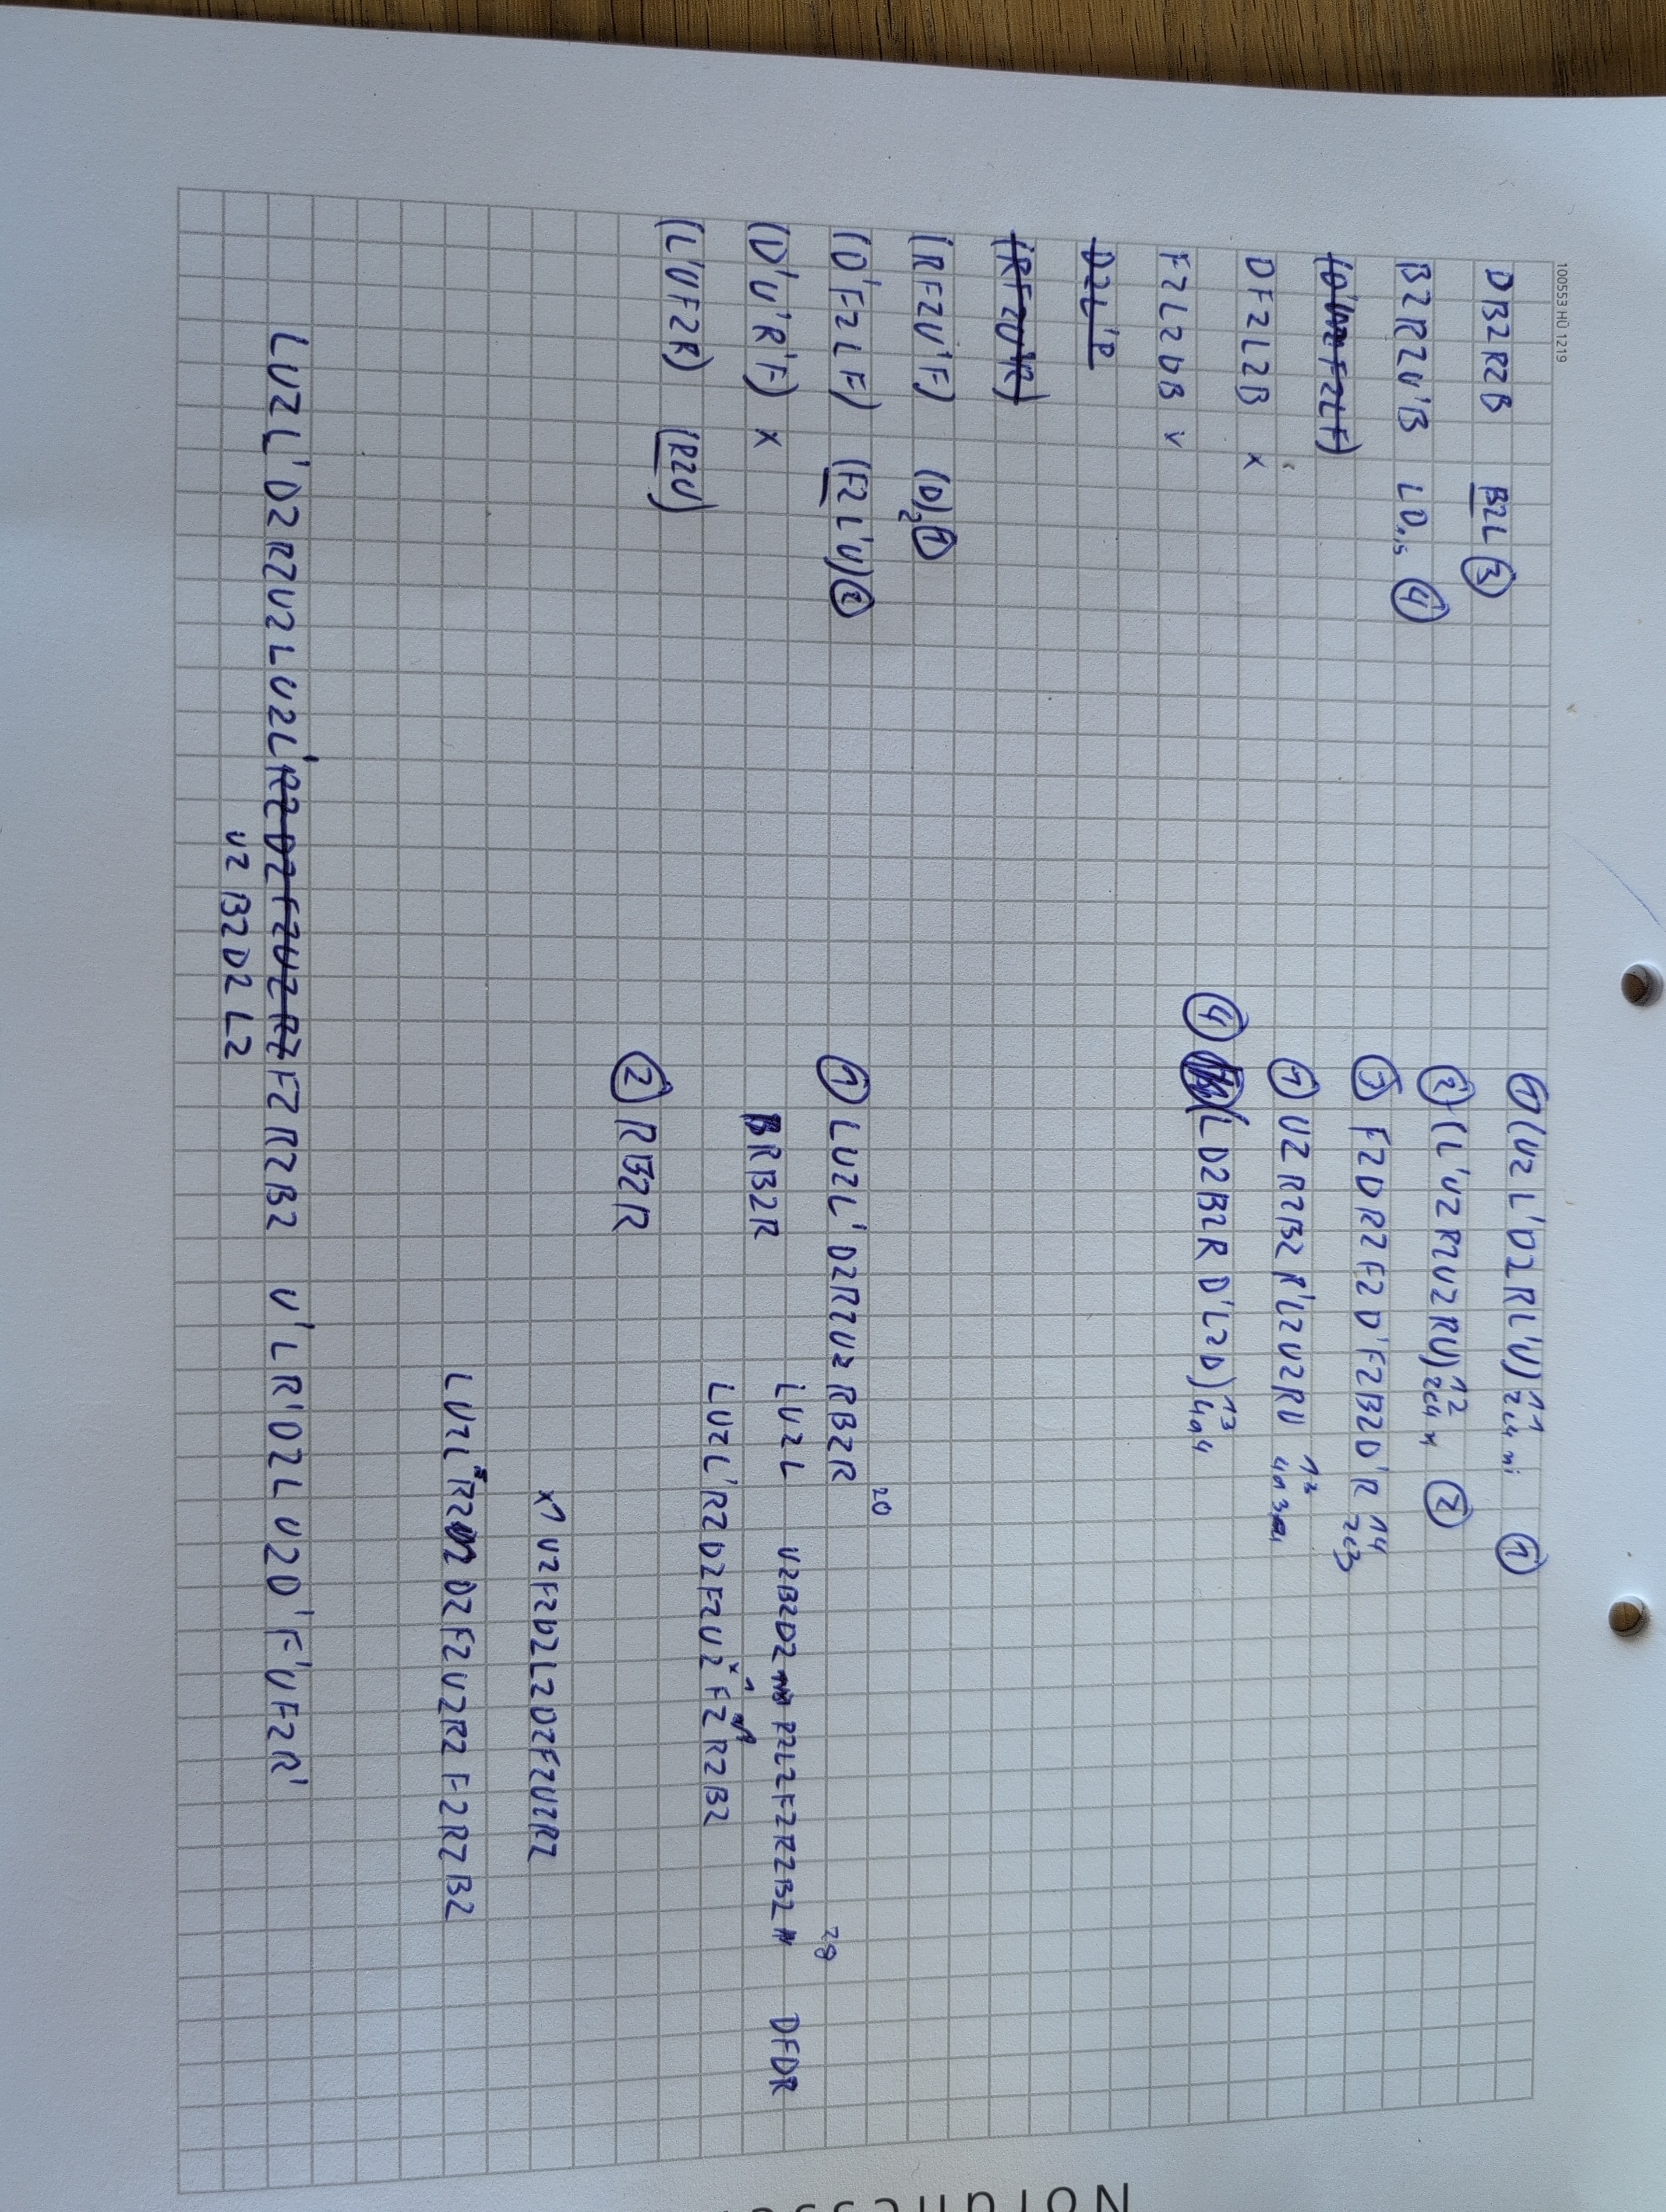 100553 HÜ 1219
DB2R2B B2L ③
B2R2U'B LD ④
DF2L2B x
F2L2DB v
D2L'D
(RF2U'R)
(RF2U'F) (D)2 ①
(D'F2LF) (F2L'U) ②
(D'U'R'F) x
(L'UF2R) (R2U)
① (U2L'D2RL'U) 11
② (L'U2R2U2RU) 12 2c4 ②
③ F2DR2F2D'F2B2D'R 14 2c3
① U2R2B2R'L2U2RU
④ (LD2B2RD'L2D) 13 4a4
①
① LU2L'D2R2U2RB2R 20
BRB2R LU2L U2B2D2 R2L2F2R2B2 28 DFDR
LU2L'R2D2F2U2F2R2B2
② RB2R
x1 U2F2D2L2D2F2U2R2
LU2L R2 D2F2U2R2F2R2B2
LU2L'D2R2U2LU2L'R2D2F2U2R2F2R2B2 U'LR'D2LU2D'F'UF2R'
U2B2D2L2